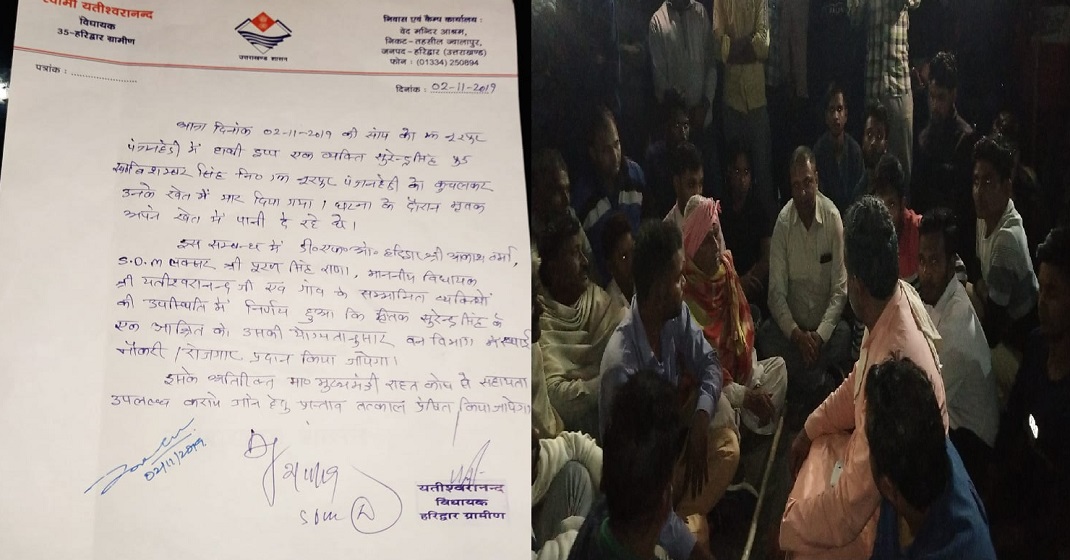 स्वामी यतीश्वरानन्द
विधायक
35-हरिद्वार ग्रामीण
उत्तराखण्ड शासन
निवास एवं कैम्प कार्यालय :
वेद मन्दिर आश्रम,
निकट-तहसील ज्वालापुर,
जनपद-हरिद्वार (उत्तराखण्ड)
फोन : (01334) 250894
पत्रांक :
दिनांक : 02-11-2019
आज दिनांक 02-11-2019 की सांय को ग्राम नूरपुर
पंजनहेडी में हाथी द्वारा एक व्यक्ति सुरेन्द्र सिंह
सिंह नि० ग्राम नूरपुर पंजनहेडी को कुचलकर
उनके खेत में मार दिया गया। घटना के दौरान मृतक
अपने खेत में पानी दे रहे थे।
इस सम्बन्ध में डी०एफ०ओ० हरिद्वार श्री आकाश वर्मा,
S.D.M लक्सर श्री पूरण सिंह राणा, माननीय विधायक
श्री यतीश्वरानन्द जी एवं गांव के सम्मानित व्यक्तियों
की उपस्थिति में निर्णय हुआ कि मृतक सुरेन्द्र सिंह के
एक आश्रित को उसकी योग्यतानुसार वन विभाग में स्थाई
नौकरी / रोजगार प्रदान किया जायेगा।
इसके अतिरिक्त मा० मुख्यमंत्री राहत कोष से सहायता
उपलब्ध कराये जाने हेतु प्रस्ताव तत्काल प्रेषित किया जायेगा
02/11/2019
SDM
यतीश्वरानन्द
विधायक
हरिद्वार ग्रामीण